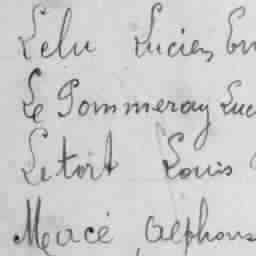 Lelu Lucien
Le Pommeray Luc
Letort Louis
Macé Alphons